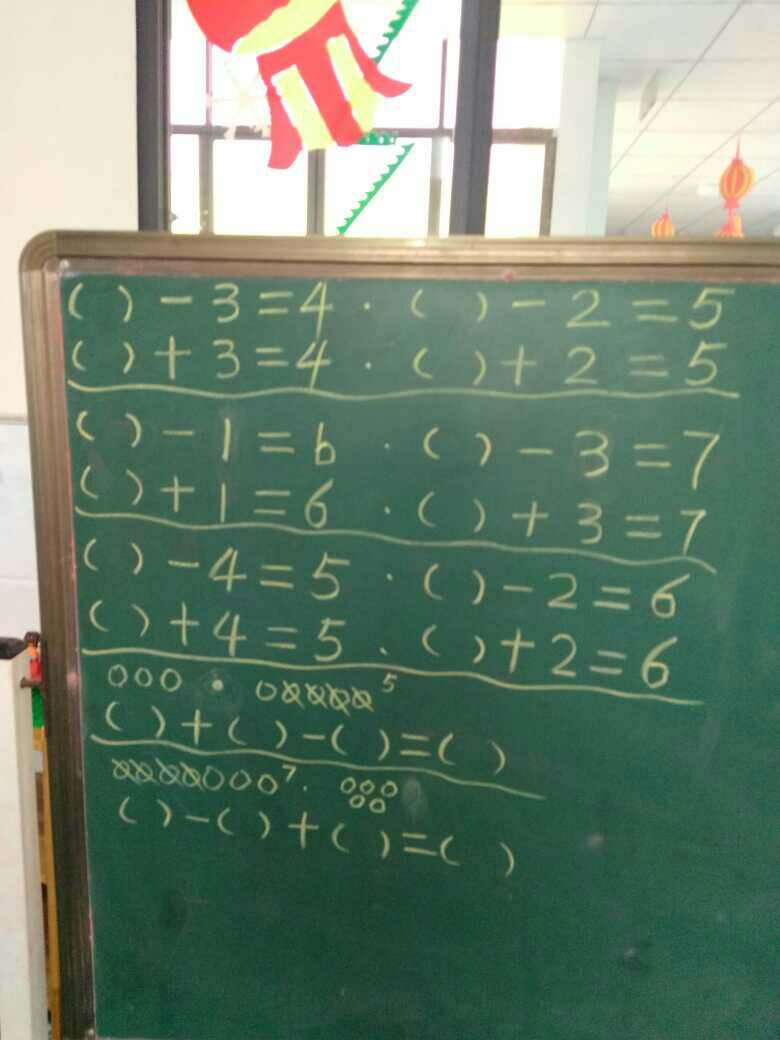 ( ) - 3 = 4 · ( ) - 2 = 5
( ) + 3 = 4 · ( ) + 2 = 5
( ) - 1 = 6 · ( ) - 3 = 7
( ) + 1 = 6 · ( ) + 3 = 7
( ) - 4 = 5 · ( ) - 2 = 6
( ) + 4 = 5 . ( ) + 2 = 6
5
( ) + ( ) - ( ) = ( )
7
( ) - ( ) + ( ) = ( )